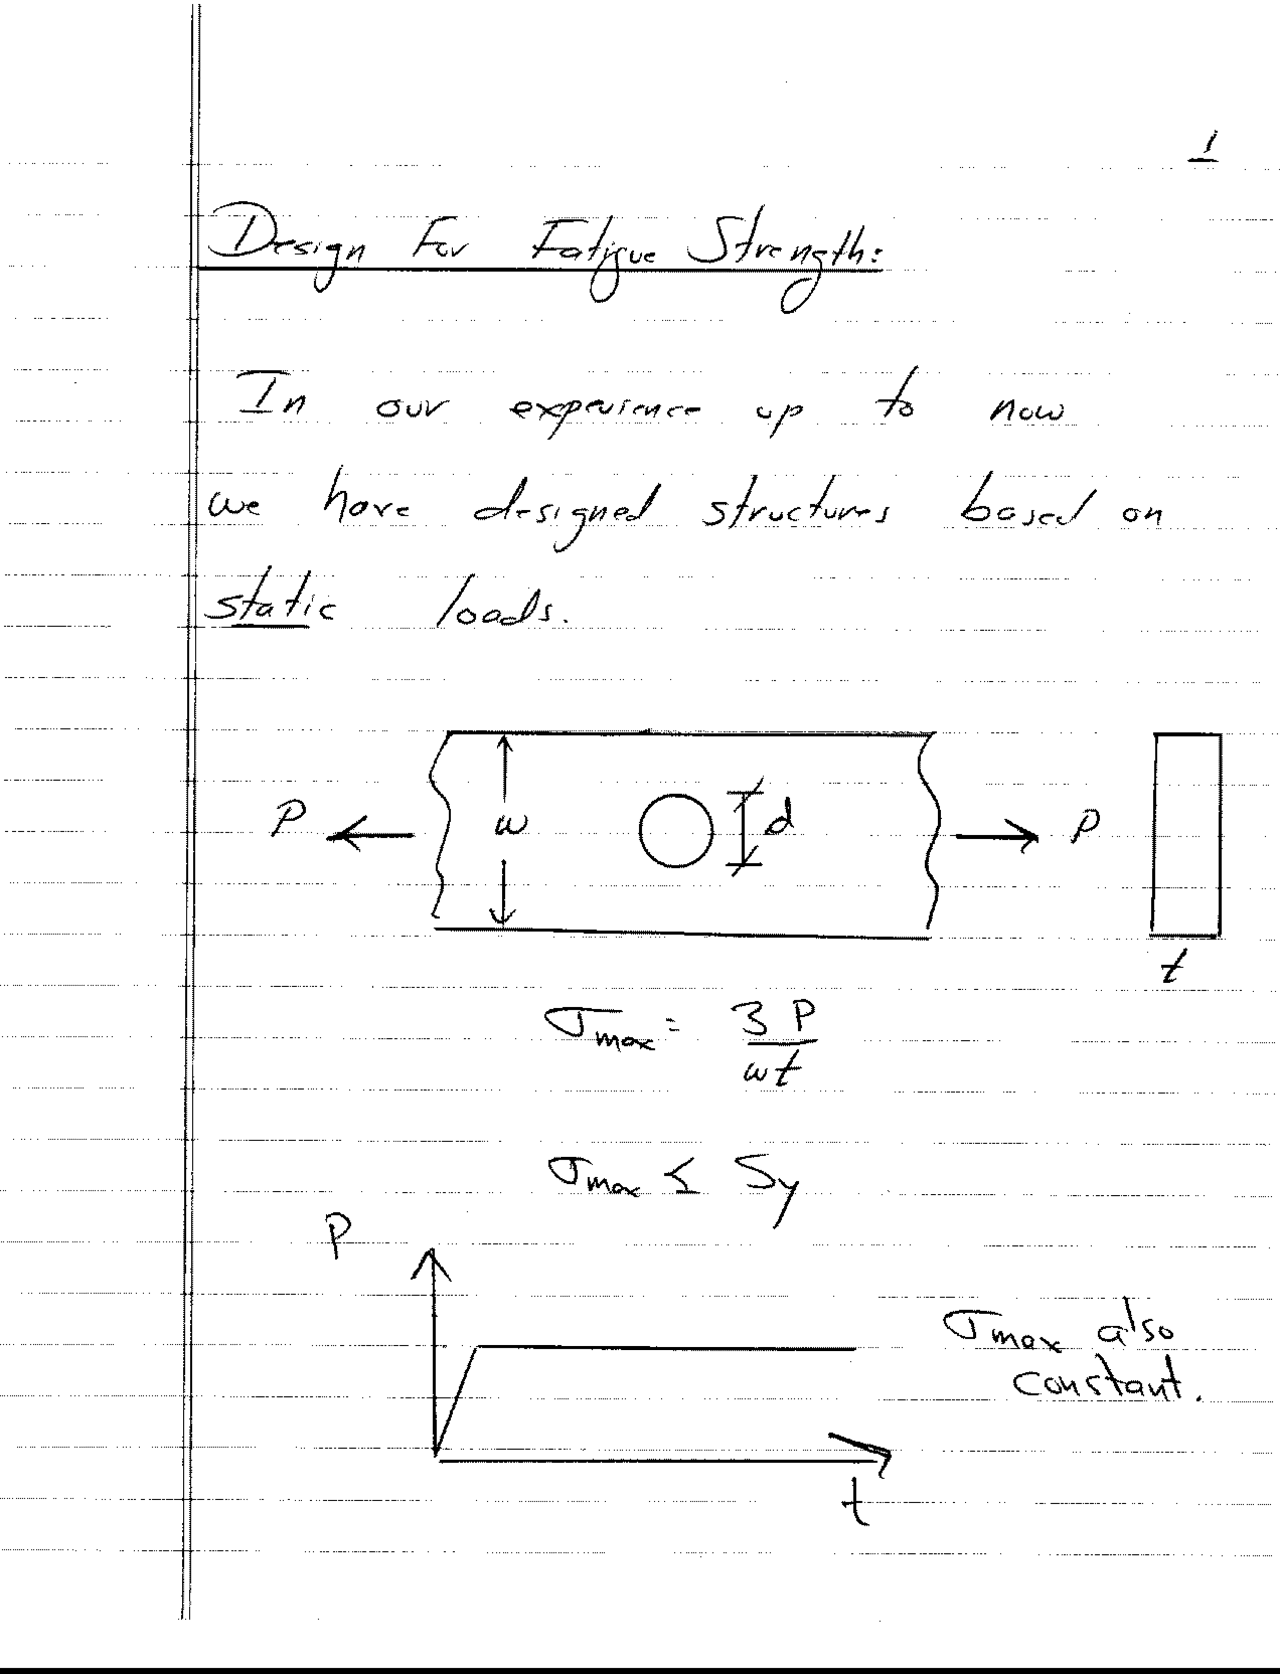 1
Design For Fatigue Strength:
In our experience up to now
we have designed structures based on
static loads.
P w d P
t
σmax = 3P/wt
σmax ≤ Sy
P
σmax also
constant.
t